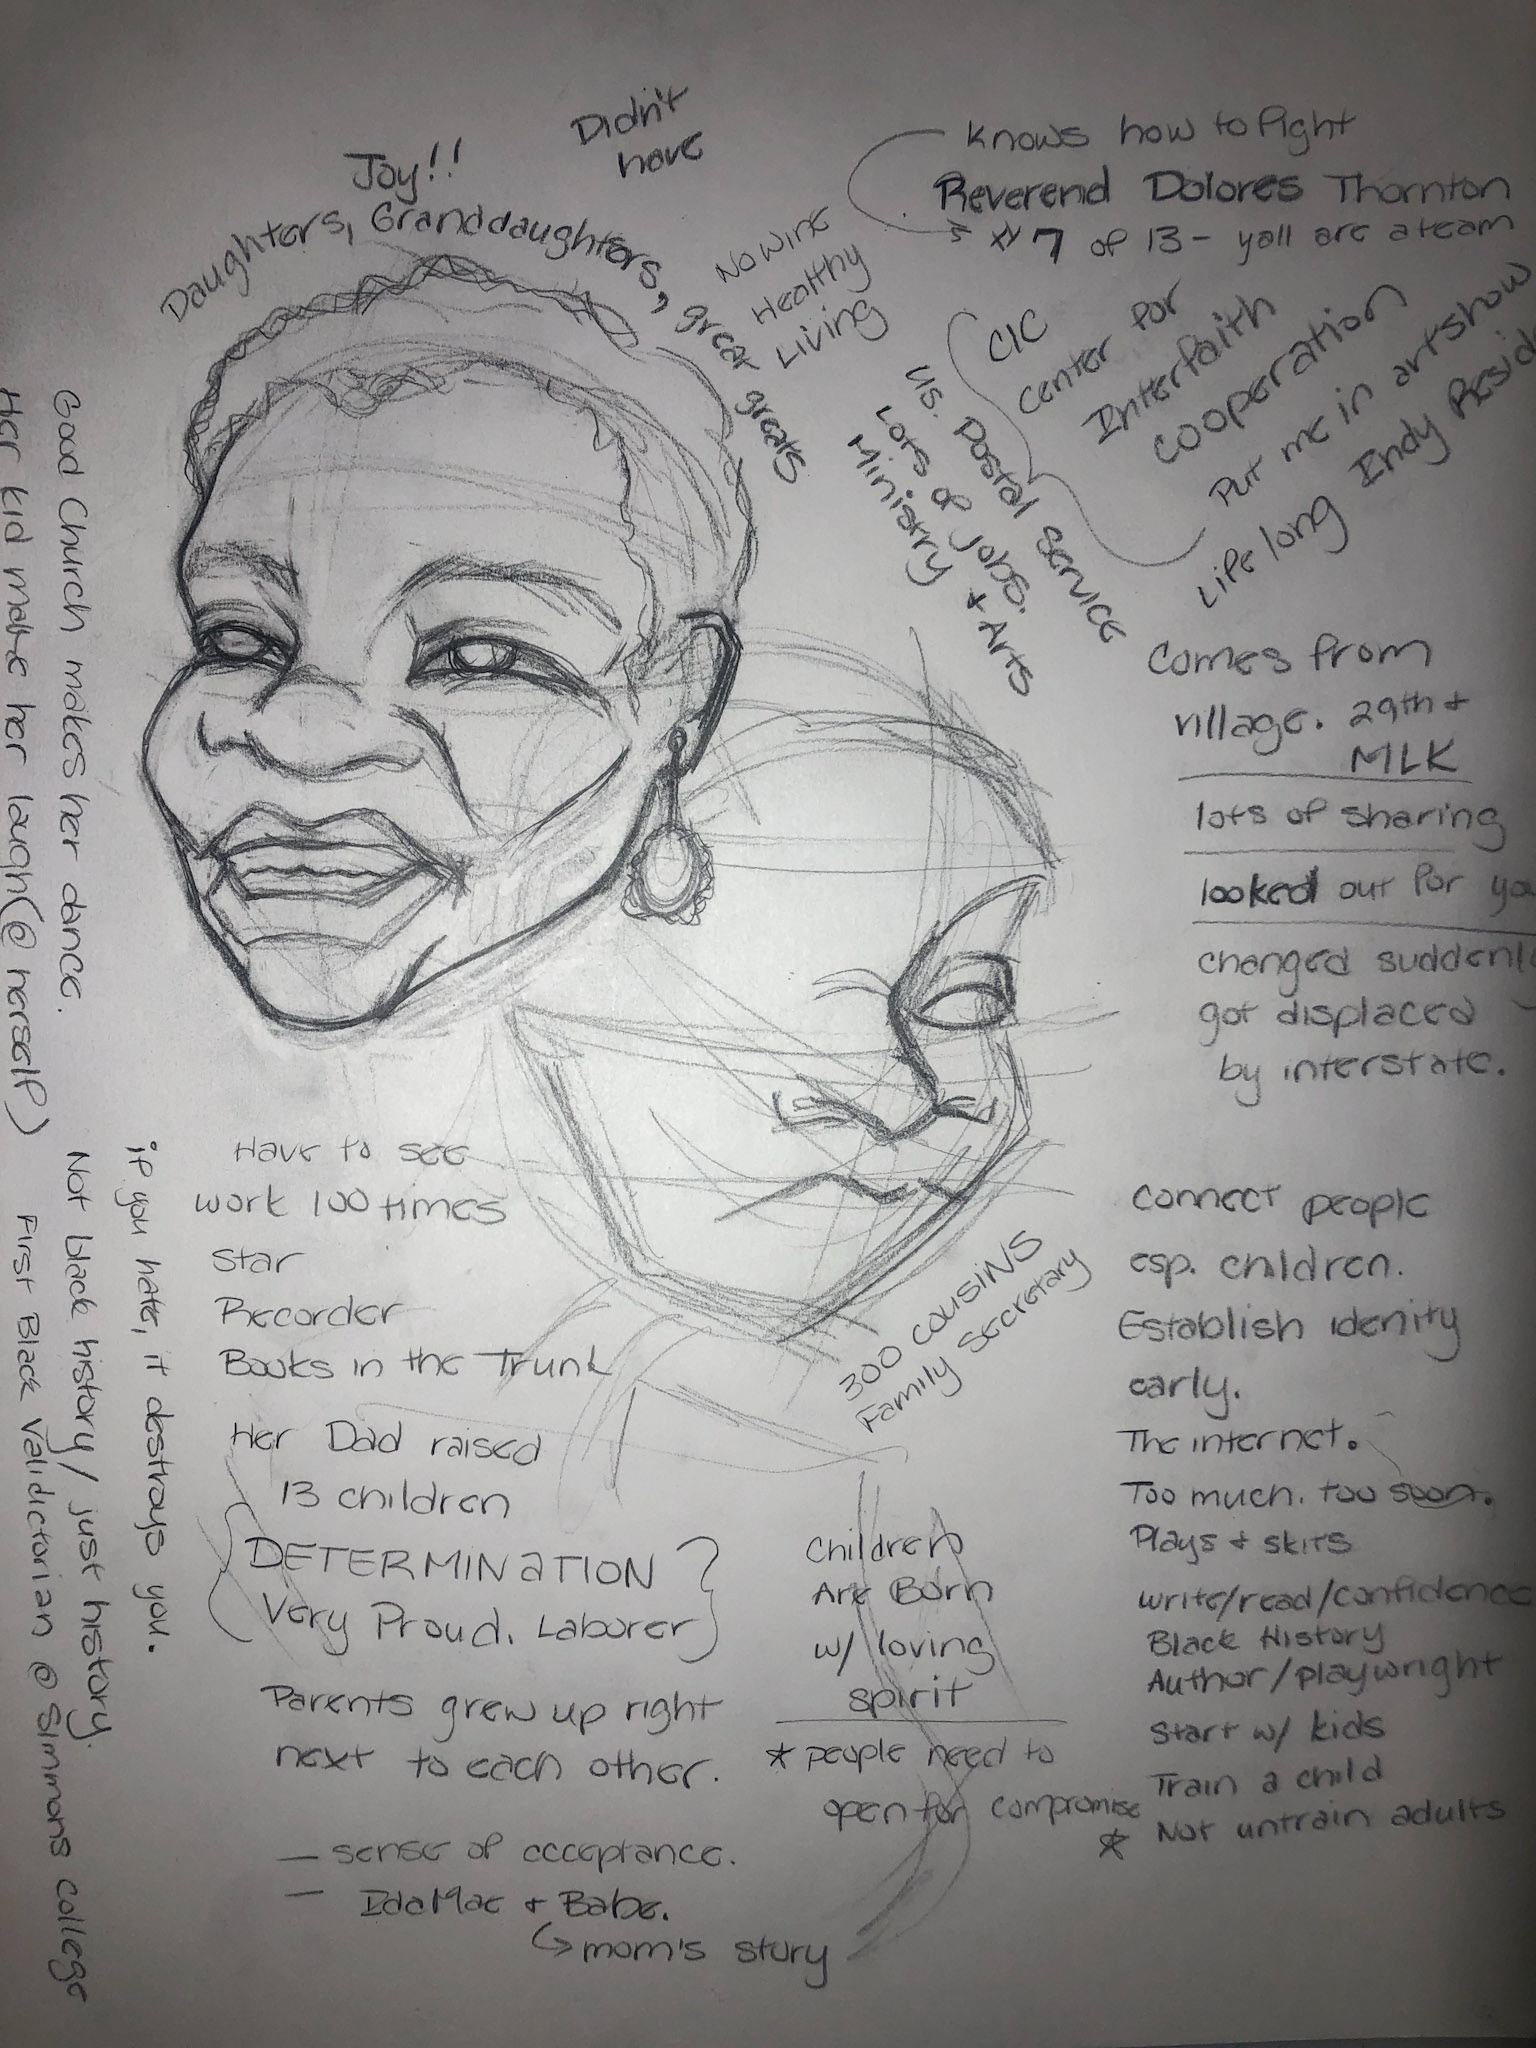 Joy!!
Didn't
have
Daughters, Granddaughters, great greats
No wine
Healthy
Living
Knows how to fight
Reverend Dolores Thornton
# 7 of 13 - yall are a team
CIC
Center for
Interfaith
Cooperation
Put me in artshow
Life long Indy Resid
U.S. Postal Service
Lots of jobs.
Ministry + Arts
Comes from
village. 29th +
MLK
lots of sharing
looked out for yo
changed suddenl
got displaced
by interstate.
Good Church makes her dance.
Her kid make her laugh (@ herself)
if you hate, it destroys you.
Not black history / just history.
First Black Validictorian @ Simmons College
Have to see
work 100 times
Star
Recorder
Books in the Trunk
Her Dad raised
13 children
DETERMINATION
Very Proud. Laborer
Parents grew up right
next to each other.
— sense of acceptance.
— Ida Mae + Babe.
mom's story
300 cousins
Family secretary
Children
Are Born
w/ loving
spirit
* people need to
open for compromise
Connect people
esp. children.
Establish idenity
early.
The internet.
Too much. too soon.
Plays + skits
write/read/confidence
Black History
Author/playwright
Start w/ kids
Train a child
* Not untrain adults